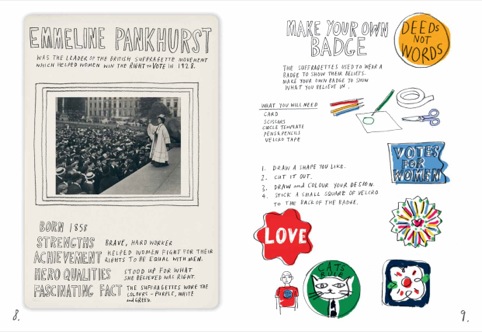 EMMELINE PANKHURST
WAS THE LEADER OF THE BRITISH SUFFRAGETTE MOVEMENT
WHICH HELPED WOMEN WIN THE RIGHT TO VOTE IN 1928.
BORN 1858
STRENGTHS BRAVE, HARD WORKER
ACHIEVEMENT HELPED WOMEN FIGHT FOR THEIR
RIGHTS TO BE EQUAL WITH MEN.
HERO QUALITIES STOOD UP FOR WHAT
SHE BELIEVED WAS RIGHT.
FASCINATING FACT THE SUFFRAGETTES WORE THE
COLOURS - PURPLE, WHITE
AND GREEN.
8.
MAKE YOUR OWN
BADGE
DEEDS
NOT
WORDS
THE SUFFRAGETTES USED TO WEAR A
BADGE TO SHOW THEIR BELIEFS.
MAKE YOUR OWN BADGE TO SHOW
WHAT YOU BELIEVE IN.
WHAT YOU WILL NEED
CARD
SCISSORS
CIRCLE TEMPLATE
PENS & PENCILS
VELCRO TAPE
1. DRAW A SHAPE YOU LIKE.
2. CUT IT OUT.
3. DRAW AND COLOUR YOUR DESIGN.
4. STICK A SMALL SQUARE OF VELCRO
TO THE BACK OF THE BADGE.
VOTES
FOR
WOMEN
LOVE
CATS
9.